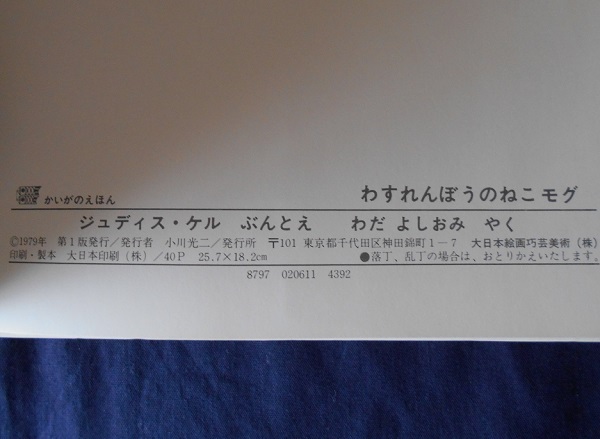 かいがのえほん わすれんぼうのねこモグ
ジュディス・ケル ぶんとえ わだ よしおみ やく
©1979年 第1版発行/発行者 小川光二/発行所 〒101 東京都千代田区神田錦町1-7 大日本絵画巧芸美術(株)
印刷・製本 大日本印刷(株)/40P 25.7×18.2cm ●落丁、乱丁の場合は、おとりかえいたします。
8797 020611 4392